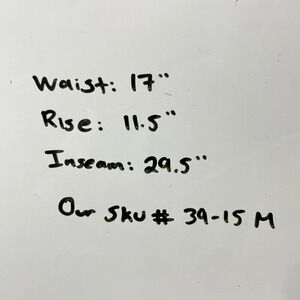 Waist: 17"
Rise: 11.5"
Inseam: 29.5"
Our SKU # 39-15 M